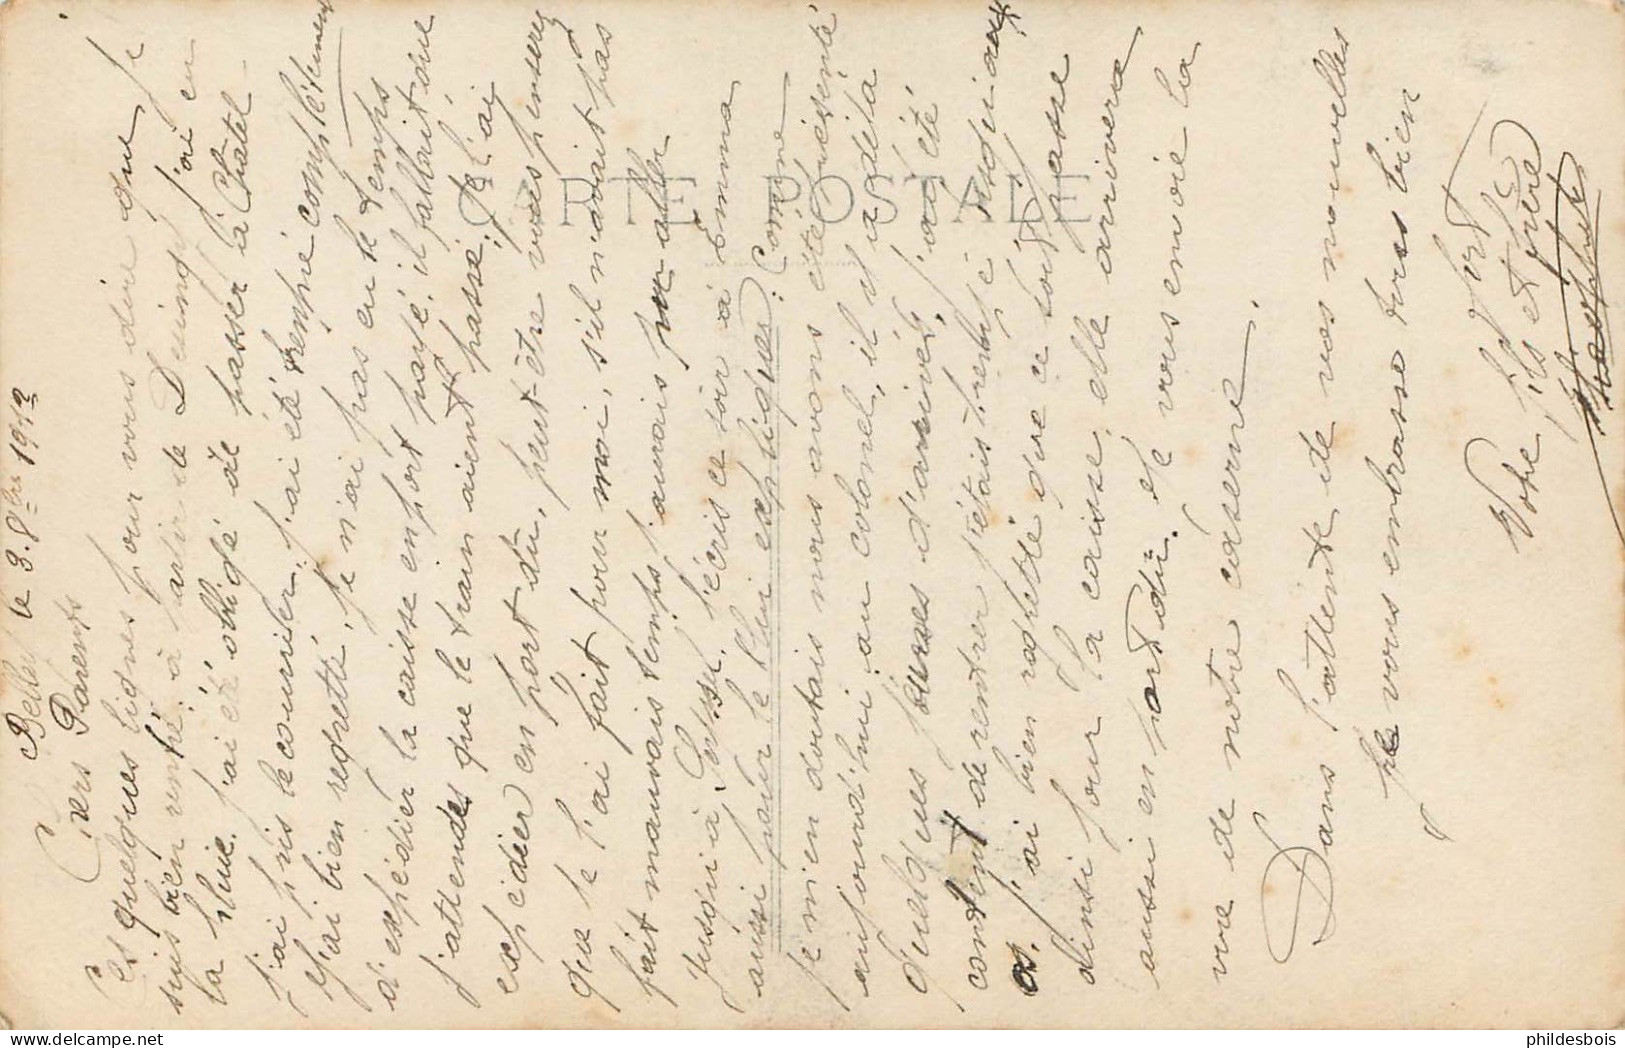 Belley le 3. 8bre 1912
Chers Parents
Ces quelques lignes pour vous dire que je
suis bien rentré, à partir de j'ai eu
la pluie. j'ai été obligé de passer à Chatel
j'ai pris le courrier, j'ai été trempé complétement
j'ai bien regretté, je n'ai pas eu le temps
d'expédier la caisse en port payé, il fallait que
j'attendes que le train aient passé, je l'ai
expédier en port dû, peut-être vous penserez
que je l'ai fait pour moi, s'il n'avait pas
fait mauvais temps j'aurais pu aller
jusqu'à j'écris ce soir à Emma
aussi pour le lui expliquer. Comme
je m'en doutais nous avons été présenté
aujourd'hui au colonel, il y a déjà
quelques jours d'arrivés, j'ai été
content de rentrer j'étais trempé jusqu'aux
os. j'ai bien regretté que ce soit passé
ainsi pour la caisse, elle arrivera
aussi en port dû. Je vous envoie la
vue de notre caserne.
Dans l'attente de vos nouvelles
je vous embrasse tous bien
fort
Votre fils et frère
CARTE POSTALE
phildesbois